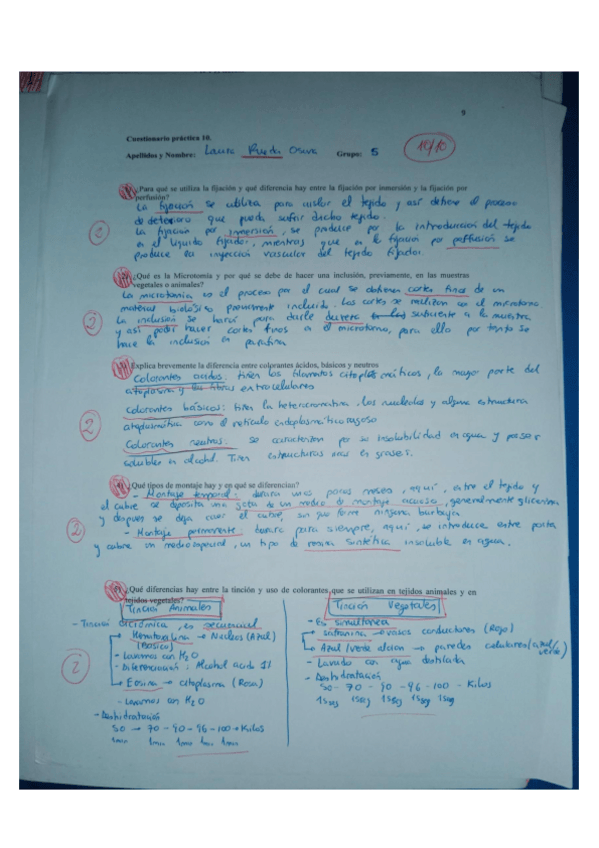 9
Cuestionario práctica 10.
Apellidos y Nombre: Laura Rueda Grupo: 5 10/10
1) ¿Para qué se utiliza la fijación y qué diferencia hay entre la fijación por inmersión y la fijación por
perfusión?
La fijación se utiliza para aislar el tejido y así detiene el proceso
de deterioro que pueda sufrir dicho tejido.
2
La fijación por inmersión, se produce por la introducción del tejido
en el líquido fijador, mientras que en la fijación por perfusión se
produce la inyección vascular del tejido fijador.
2) ¿Qué es la Microtomía y por qué se debe de hacer una inclusión, previamente, en las muestras
vegetales o animales?
La microtomía es el proceso por el cual se obtienen cortes finos de un
material biológico previamente incluido. Los cortes se realizan con el microtomo
2
La inclusión se hará para darle dureza suficiente a la muestra
y así poder hacer cortes finos en el microtomo, para ello por tanto se
hace la inclusión en parafina
3) Explica brevemente la diferencia entre colorantes ácidos, básicos y neutros
Colorantes ácidos: tiñen los filamentos citoplasmáticos, la mayor parte del
citoplasma y las fibras extracelulares
2
Colorantes básicos: tiñen la heterocromatina. los nucleolos y alguna estructura
citoplasmática como el retículo endoplasmático rugoso
Colorantes neutros: se caracterizan por su insolubilidad en agua y por ser
solubles en alcohol. Tiñen estructuras ricas en grasas.
4) ¿Qué tipos de montaje hay y en qué se diferencian?
- Montaje temporal: durará unos pocos meses, aquí, entre el tejido y
el cubre se deposita una gota de un medio de montaje acuoso, generalmente glicerina
2
y despues se deja caer el cubre, sin que forme ninguna burbuja
- Montaje permanente: durará para siempre, aquí, se introduce entre porta
y cubre un medio especial, un tipo de resina sintética insoluble en agua.
5) ¿Qué diferencias hay entre la tinción y uso de colorantes que se utilizan en tejidos animales y en
tejidos vegetales?
Tinción Animales
- Tinción dicrómica, es secuencial
Hematoxilina → Núcleos (Azul)
(Básico)
- Lavamos con H2O
2
- Diferenciación: Alcohol acido 1%
Eosina → citoplasma (Rosa)
- Lavamos con H2O
- Deshidratación
50 → 70 - 90 - 96 - 100 → Xilos
1min 1min 1min 1min 1min
Tinción Vegetales
- Es simultanea
safranina → vasos conductores (Rojo)
Azul/verde alcian → paredes celulares (azul/verde)
- Lavado con agua destilada
- Deshidratación
50 - 70 - 90 - 96 - 100 - Xilos
15seg 15seg 15seg 15seg 15seg